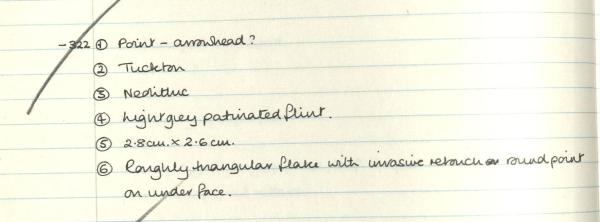 -322 ① Point - arrowhead?
② Tuckton
③ Neolithic
④ Light grey patinated flint.
⑤ 2.8cm. × 2.6cm.
⑥ Roughly triangular flake with invasive retouch round point
on under face.